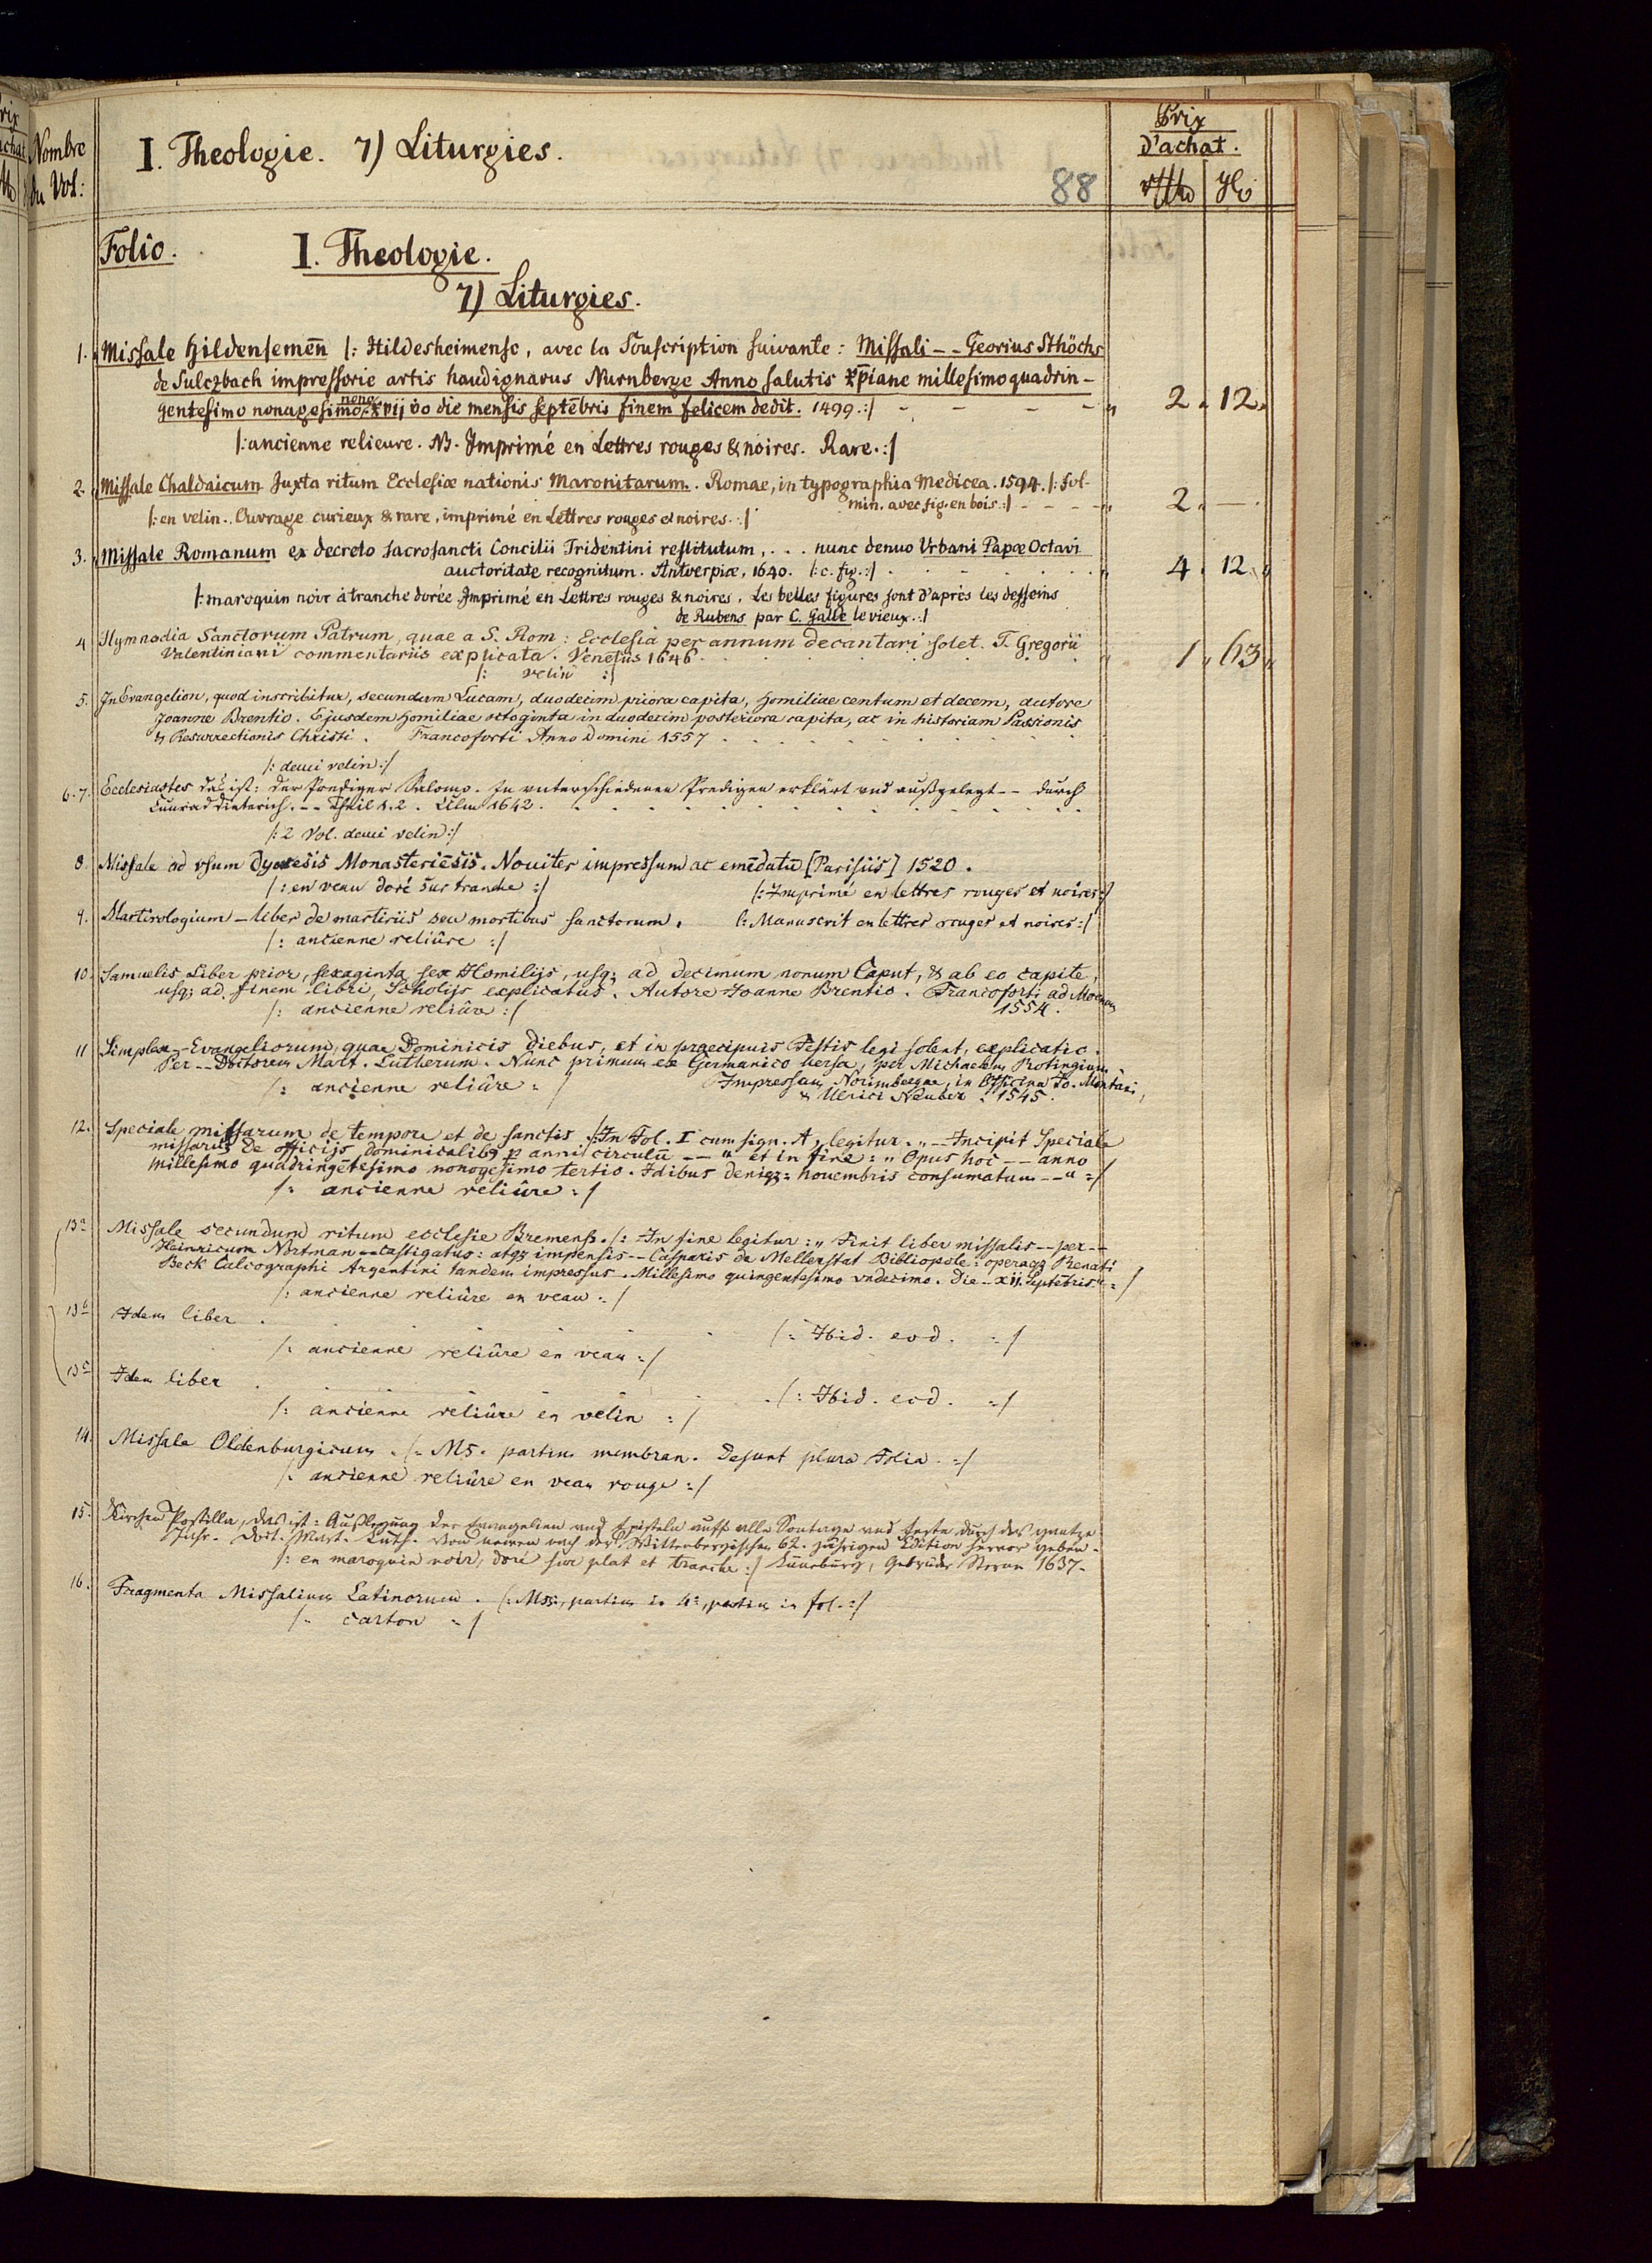 Nombre
du Vol:
I. Theologie. 7) Liturgies.
88
Prix
d'achat.
Folio.
I. Theologie.
7) Liturgies.
1. Missale Hildensemēn |: Hildesheimense, avec la Souscription suivante: Missali -- Georius Sthöchs
de Sulczbach impressorie artis haudignarus Nurnberge Anno salutis xp̄iane millesimo quadrin-
nono
gentesimo nonagesimo, xvij vo die mensis septēbris finem felicem dedit. 1499. :| - - - - " 2 " 12 "
|: ancienne relieure. NB. Imprimé en Lettres rouges & noires. Rare. :|
2. Missale Chaldaicum Juxta ritum Ecclesiæ nationis Maronitarum. Romae, in typographia Medicea. 1594. |: fol-
min. avec fig. en bois :| - - - - " 2 " — .
|: en velin. Ouvrage curieux & rare, imprimé en Lettres rouges et noires. :|
3. Missale Romanum ex decreto sacrosancti Concilii Tridentini restitutum, . . . nunc denuo Urbani Papæ Octavi
auctoritate recognitum. Antverpiæ, 1640. |: c. fig. :| . . . . . . " 4 " 12 "
|: maroquin noir à tranche dorée. Imprimé en Lettres rouges & noires. Les belles figures sont d'après les desseins
de Rubens par C. Galle le vieux. :|
4 Hymnodia Sanctorum Patrum, quae a S. Rom: Ecclesia per annum decantari solet. T. Gregorii
Valentiniani commentariis explicata. Venetiis 1646 . . . . . " 1 " 63 "
|: velin :|
5. In Evangelion, quod inscribitur, secundum Lucam, duodecim priora capita, Homiliae centum et decem, autore
Joanne Brentio. Ejusdem Homiliae octoginta in duodecim posteriora capita, ac in historiam Passionis
& Resurrectionis Christi. Francoforti Anno Domini 1557 . . . . . .
|: demi velin :|
6.7. Ecclesiastes daß ist: der Prediger Salomo. In unterschiedenen Predigen erklärt und außgelegt -- durch
Cunrad Dieterich. -- Theil 1.2. Ulm 1642. . . . . . .
|: 2 Vol. demi velin :|
8. Missale ad vsum dyocesis Monasteriēsis. Nouiter impressum ac emēdatū [Parisiis] 1520.
|: en veau doré sur tranche :| |: Imprimé en lettres rouges et noires :|
9. Martirologium - liber de martiriis seu mortibus sanctorum. |: Manuscrit en lettres rouges et noires :|
|: ancienne reliûre :|
10. Samuelis Liber prior, sexaginta sex Homilijs, usq; ad decimum nonum Caput, & ab eo capite,
usq; ad finem libri, Scholijs explicatus. Autore Joanne Brentio. Francoforti ad Moenum
|: ancienne reliûre :| 1554.
11 Simplex -- Evangeliorum, quae Dominicis diebus, et in praecipuis Festis legi solent, explicatio.
Per -- Doctorem Mart. Lutherum. Nunc primum ex Germanico versa, per Michaelem Rotingium.
|: ancienne reliûre :| Impressum Norimbergae, in Officina Jo. Montani,
& Ulrici Neuber. 1545.
12. Speciale missarum de tempore et de sanctis. |: In Fol. I cum sign. A, legitur: „ -- Incipit Speciale
missarūȝ de officijs dominicalibȝ p anni circulū -- " et in fine: „ Opus hoc -- anno
millesimo quadringētesimo nonogesimo tertio. Idibus deniqȝ: nouembris consumatum -- " :|
|: ancienne reliûre :|
13a Missale secundum ritum ecclesie Bremenß. |: In fine legitur: „ Finit liber missalis -- per --
Heinricum Nortman -- castigatus: atqȝ impensis -- Casparis de Mellerstat Bibliopole: operaqȝ Renati
Beck Calcographi Argentini tandem impressus. Millesimo quingentesimo vndecimo. die -- xij. Septēbris " :|
|: ancienne reliûre en veau. :|
13b Idem liber . . . . . |: Ibid. eod. :|
|: ancienne reliûre en veau :|
13c Idem liber . . . . . |: Ibid. eod. :|
|: ancienne reliûre en velin :|
14. Missale Oldenburgicum. |: MS. partim membran. Desunt plura Folia. :|
|: ancienne reliûre en veau rouge :|
15. Kirchen Postilla, das ist: Außlegung der Evangelien und Episteln auff alle Sontage und Feste durch das gantze
Jahr. Doct. Mart. Luth. Von newen nach der Wittenbergischen 62. jährigen Edition hervor geben.
|: en maroquin noir, doré sur plat et tranche :| Lüneburg, Gebrüder Stern 1637.
16. Fragmenta Missalium Latinorum. |: Mss., partim in 4º, partim in fol. :|
|: carton :|